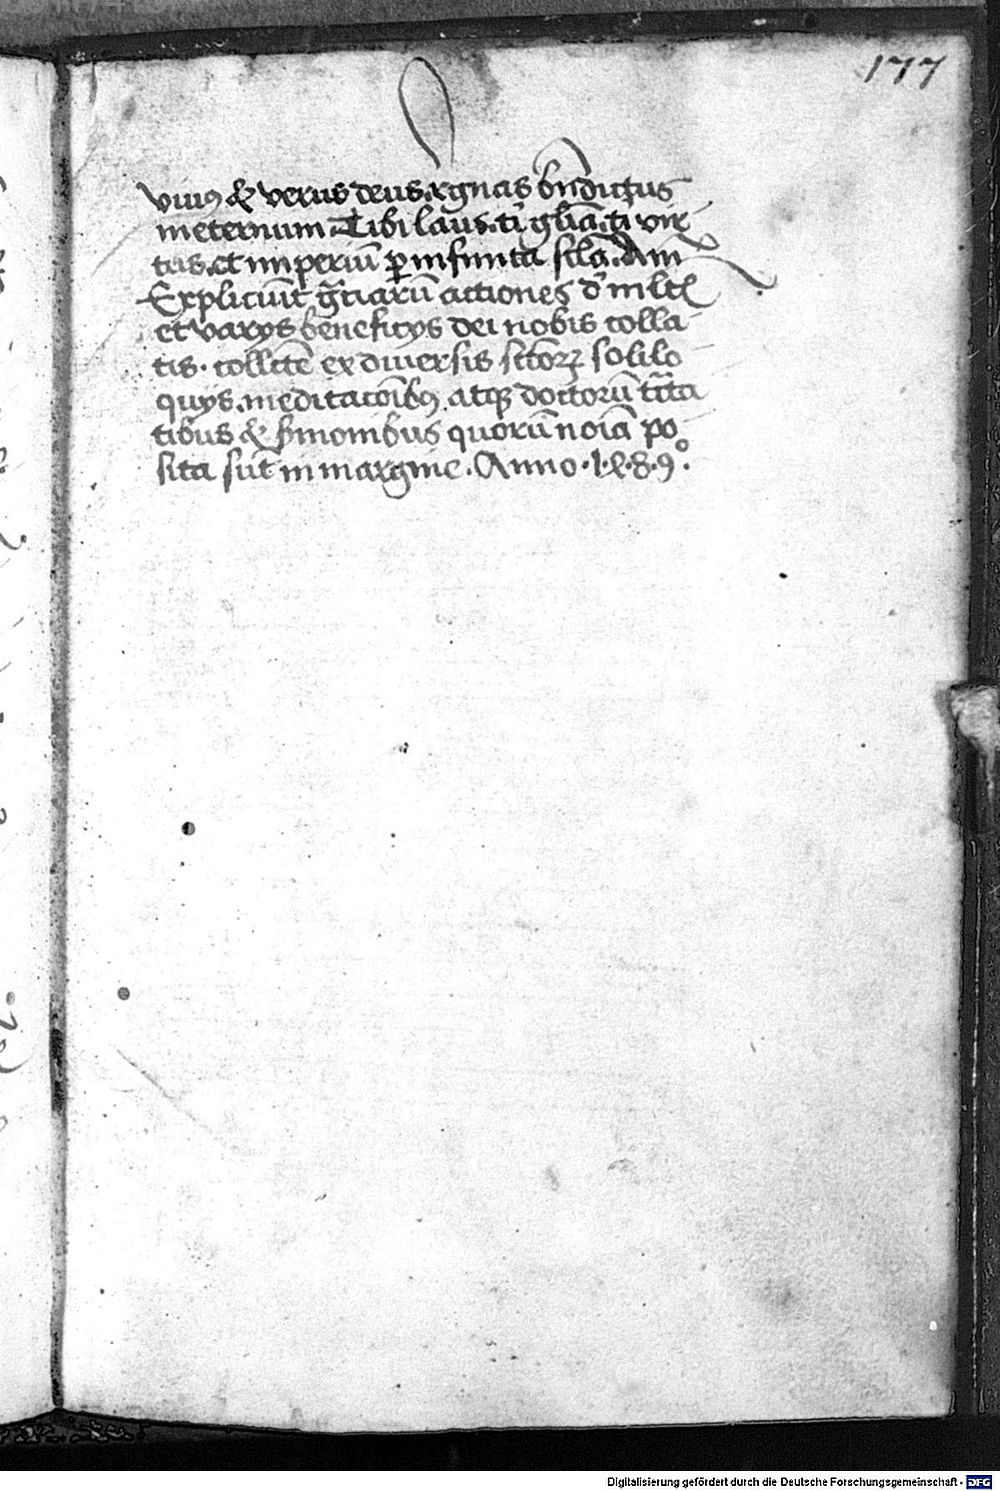 177
viuꝰ & verus deus. regnas bn̄dictus
in eternum. Tibi laus. ti gl̄ia. ti vir-
tus. et imperiū ꝑ infinita scl̄a. Am̄
Expliciūt gr̄ciarū actiones d'
et varijs beneficijs dei nobis colla-
tis. collecte ex diuersis sctōꝝ solilo-
quijs. meditacōibꝰ. atqꝫ doctorū tr̄cta
tibus & sꝑmonibus quorū noīa po-
sita sūt in margine. Anno. 1.8.9°.
Digitalisierung gefördert durch die Deutsche Forschungsgemeinschaft - DFG